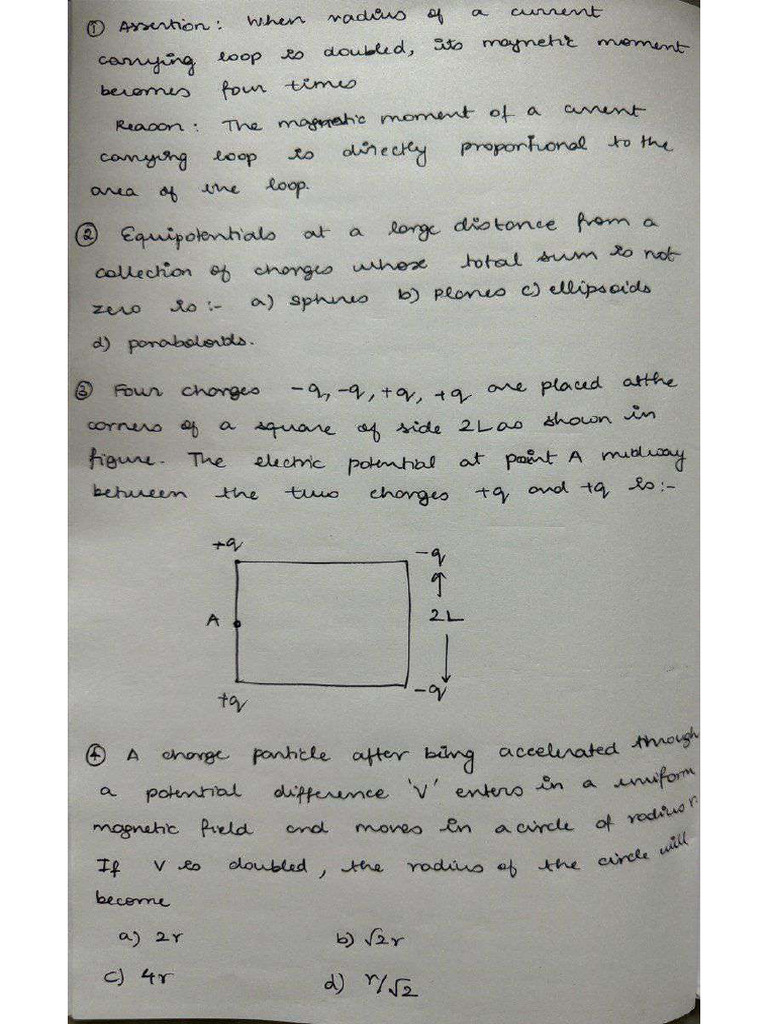 ① Assertion: When radius of a current
carrying loop is doubled, its magnetic moment
becomes four times
Reason: The magnetic moment of a current
carrying loop is directly proportional to the
area of the loop.
② Equipotentials at a large distance from a
collection of charges whose total sum is not
zero is:- a) spheres b) planes c) ellipsoids
d) paraboloids.
③ Four charges -q, -q, +q, +q are placed at the
corners of a square of side 2L as shown in
figure. The electric potential at point A midway
between the two charges +q and +q is:-
+q -q
A 2L
+q -q
④ A charge particle after being accelerated through
a potential difference 'V' enters in a uniform
magnetic field and moves in a circle of radius r.
If V is doubled, the radius of the circle will
become
a) 2r b) √2r
c) 4r d) r/√2